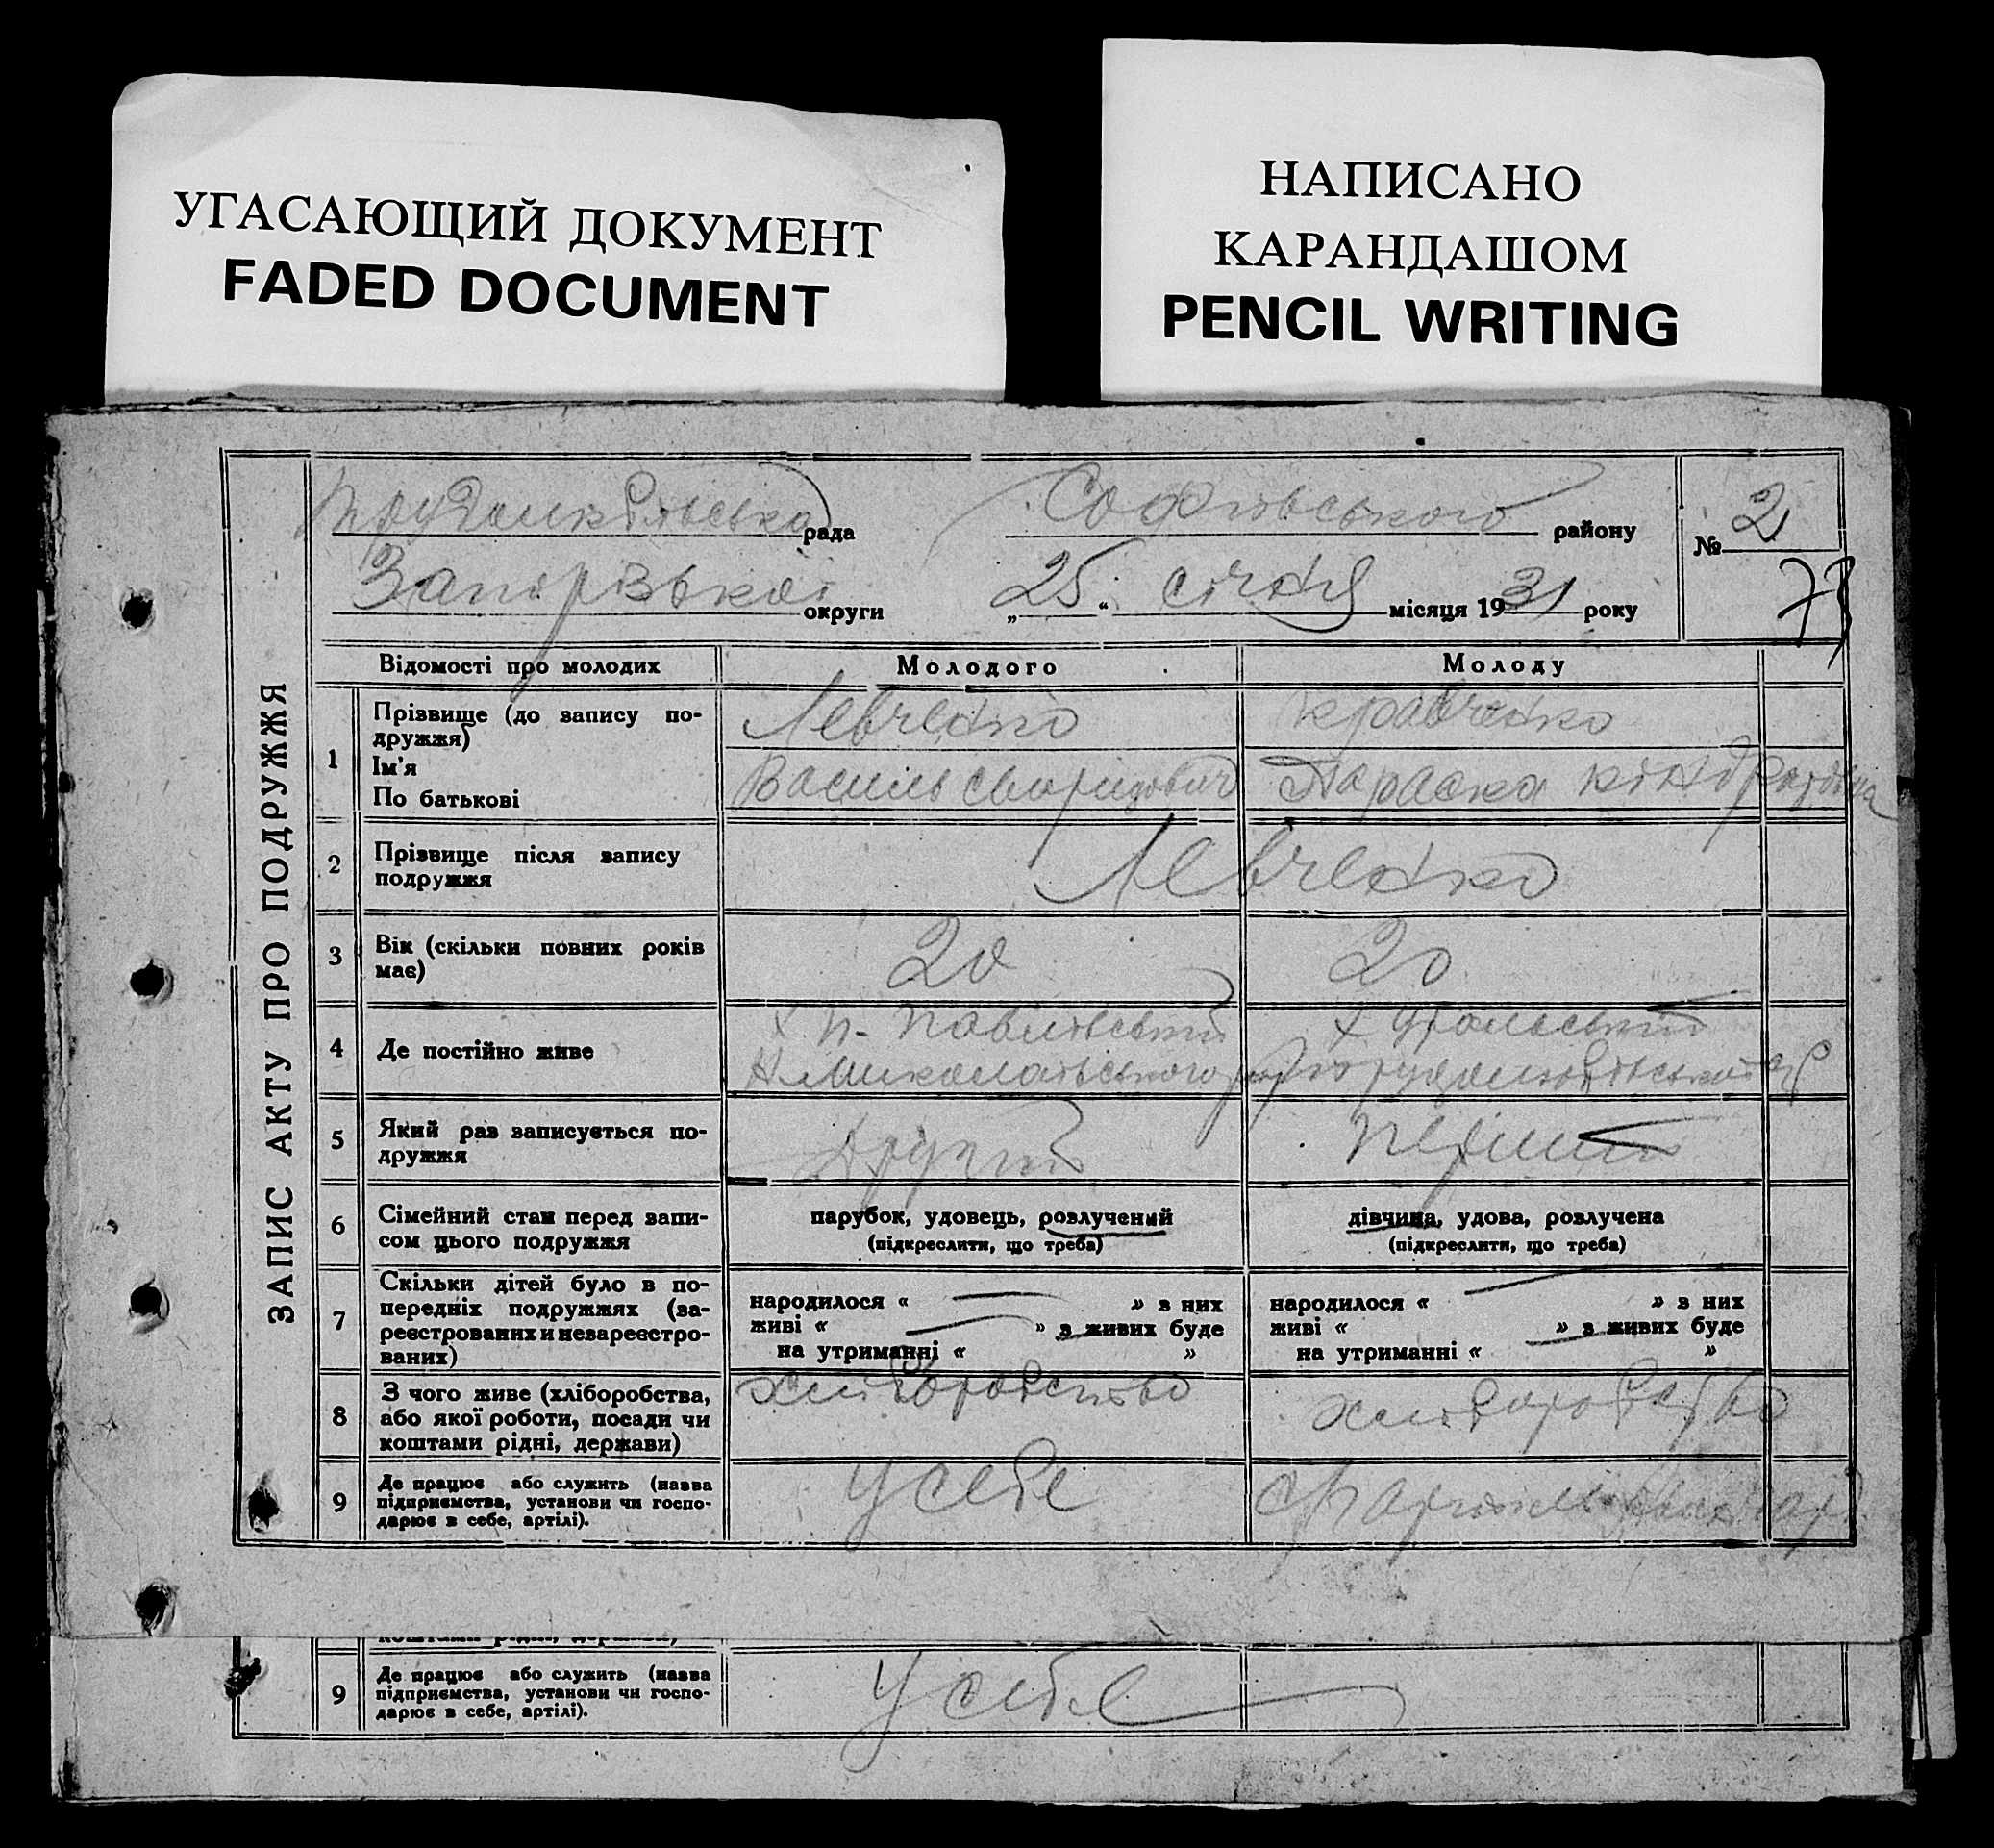 УГАСАЮЩИЙ ДОКУМЕНТ
FADED DOCUMENT
НАПИСАНО
КАРАНДАШОМ
PENCIL WRITING
ЗАПИС АКТУ ПРО ПОДРУЖЖЯ
рада Софіївського району
№ 2
Запорізької округи „25“ січня місяця 1931 року
73
Відомості про молодих Молодого Молоду
1 Прізвище (до запису по-
дружжя) Левченко Кравченко
Ім'я
По батькові Василь Свиридович Параска Кіндратівна
2 Прізвище після запису
подружжя Левченко
3 Вік (скільки повних років
має) 20 20
4 Де постійно живе х Н- Павлівський х
Н Миколаївського рай
5 Який раз записується по-
дружжя Другий Перший
6 Сімейний стан перед запи-
сом цього подружжя
парубок, удовець, розлучений
(підкреслити, що треба)
дівчина, удова, розлучена
(підкреслити, що треба)
7 Скільки дітей було в по-
передніх подружжях (за-
реєстрованих и незареєстро-
ваних)
народилося « — » з них
живі « — » з живих буде
на утриманні « »
народилося « — » з них
живі « » з живих буде
на утриманні « »
8 З чого живе (хліборобства,
або якої роботи, посади чи
коштами рідні, держави)
хліборобство хліборобство
9 Де працює або служить (назва
підприємства, установи чи госпо-
дарює в себе, артілі).
У себе
9 Де працює або служить (назва
підприємства, установи чи госпо-
дарює в себе, артілі).
У себе